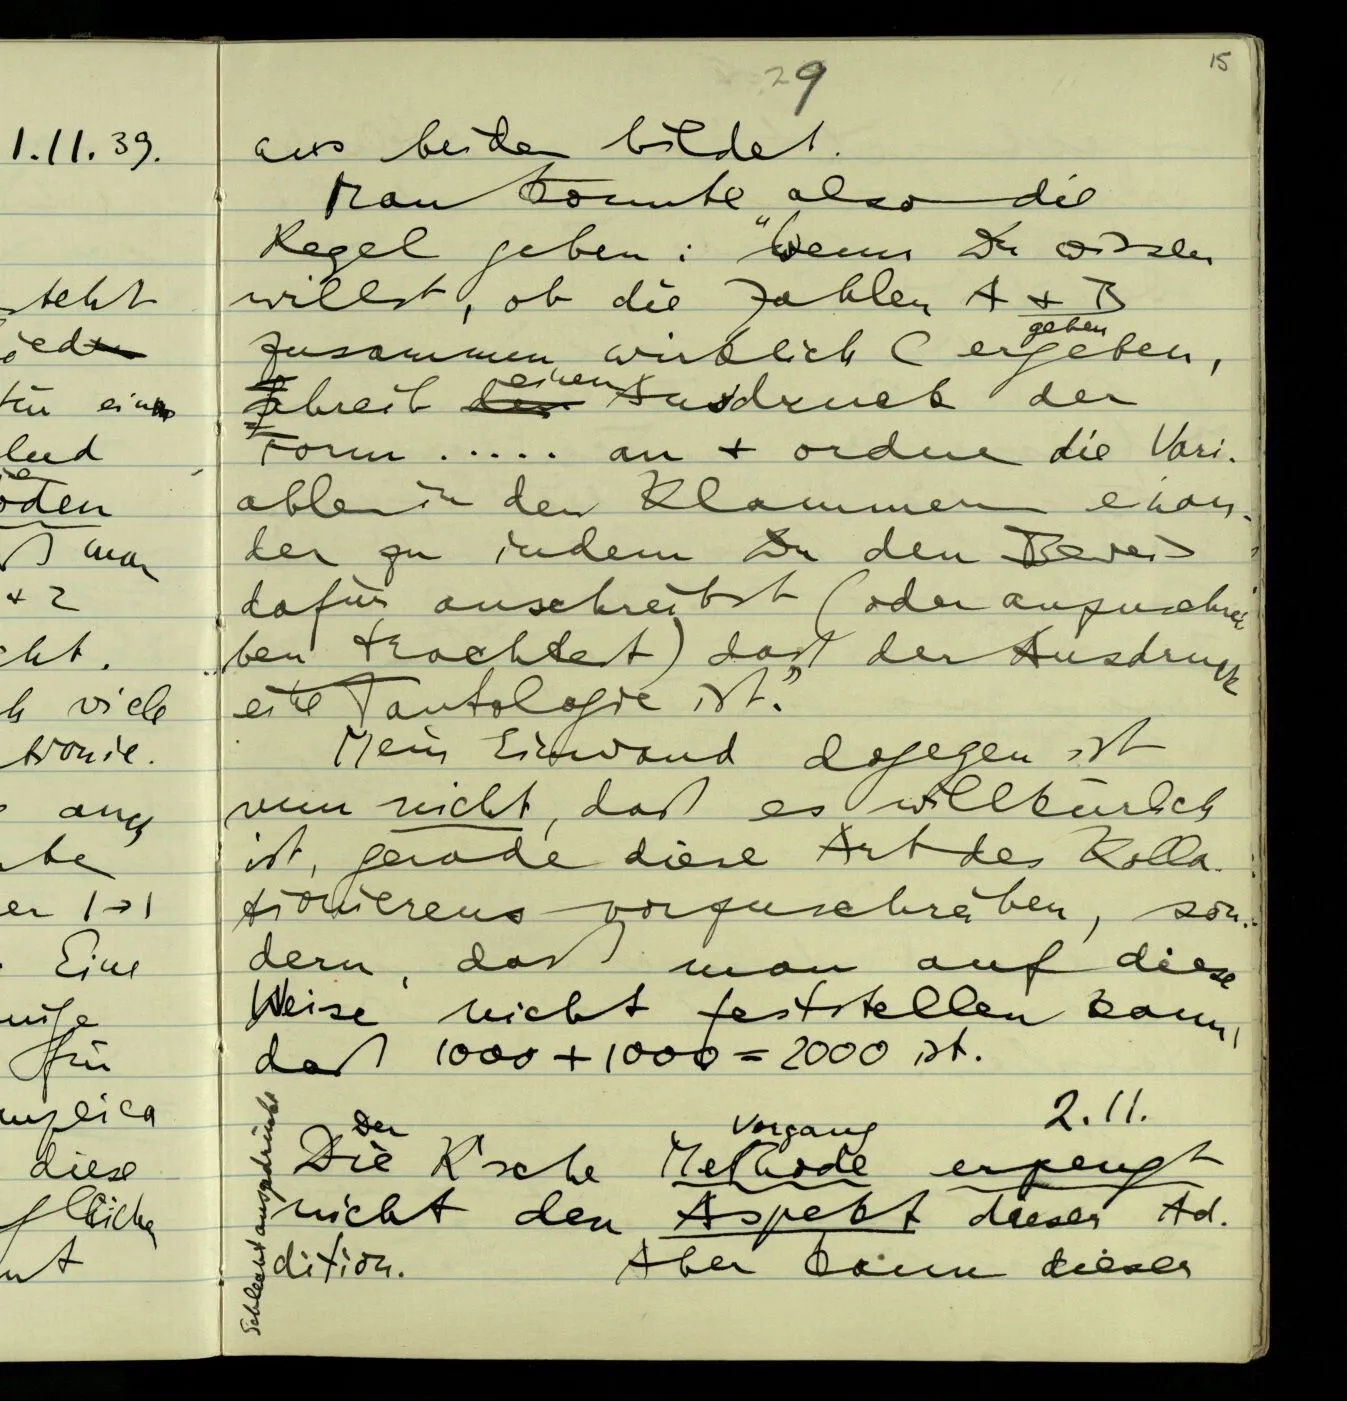 1.11.39.
steht
für eine
oden
man
+ 2
cht.
viele
tionie.
auch
er 1→1
Eine
für
diese
Gleiche
nt
29
15
aus beiden bildet.
Man könnte also die
Regel geben: "Wenn Du wissen
willst, ob die Zahlen A + B
geben
zusammen wirklich C ergeben,
einen
schreib den Ausdruck der
Form ..... an + ordne die Vari-
ablen in den Klammern einan-
der zu indem Du den Beweis
dafür anschreibst (oder anzuschrei
ben trachtest) daß der Ausdruck
eine Tautologie ist."
Mein Einwand dagegen ist
nun nicht, daß es willkürlich
ist, gerade diese Art des Kolla-
tionierens vorzuschreiben, son-
dern, daß man auf diese
Weise nicht feststellen kann,
daß 1000 + 1000 = 2000 ist.
2.11.
Der Vorgang
Die R'sche Methode erzeugt
nicht den Aspekt dieser Ad-
dition. Aber kann dieser
Schlecht ausgedrückt